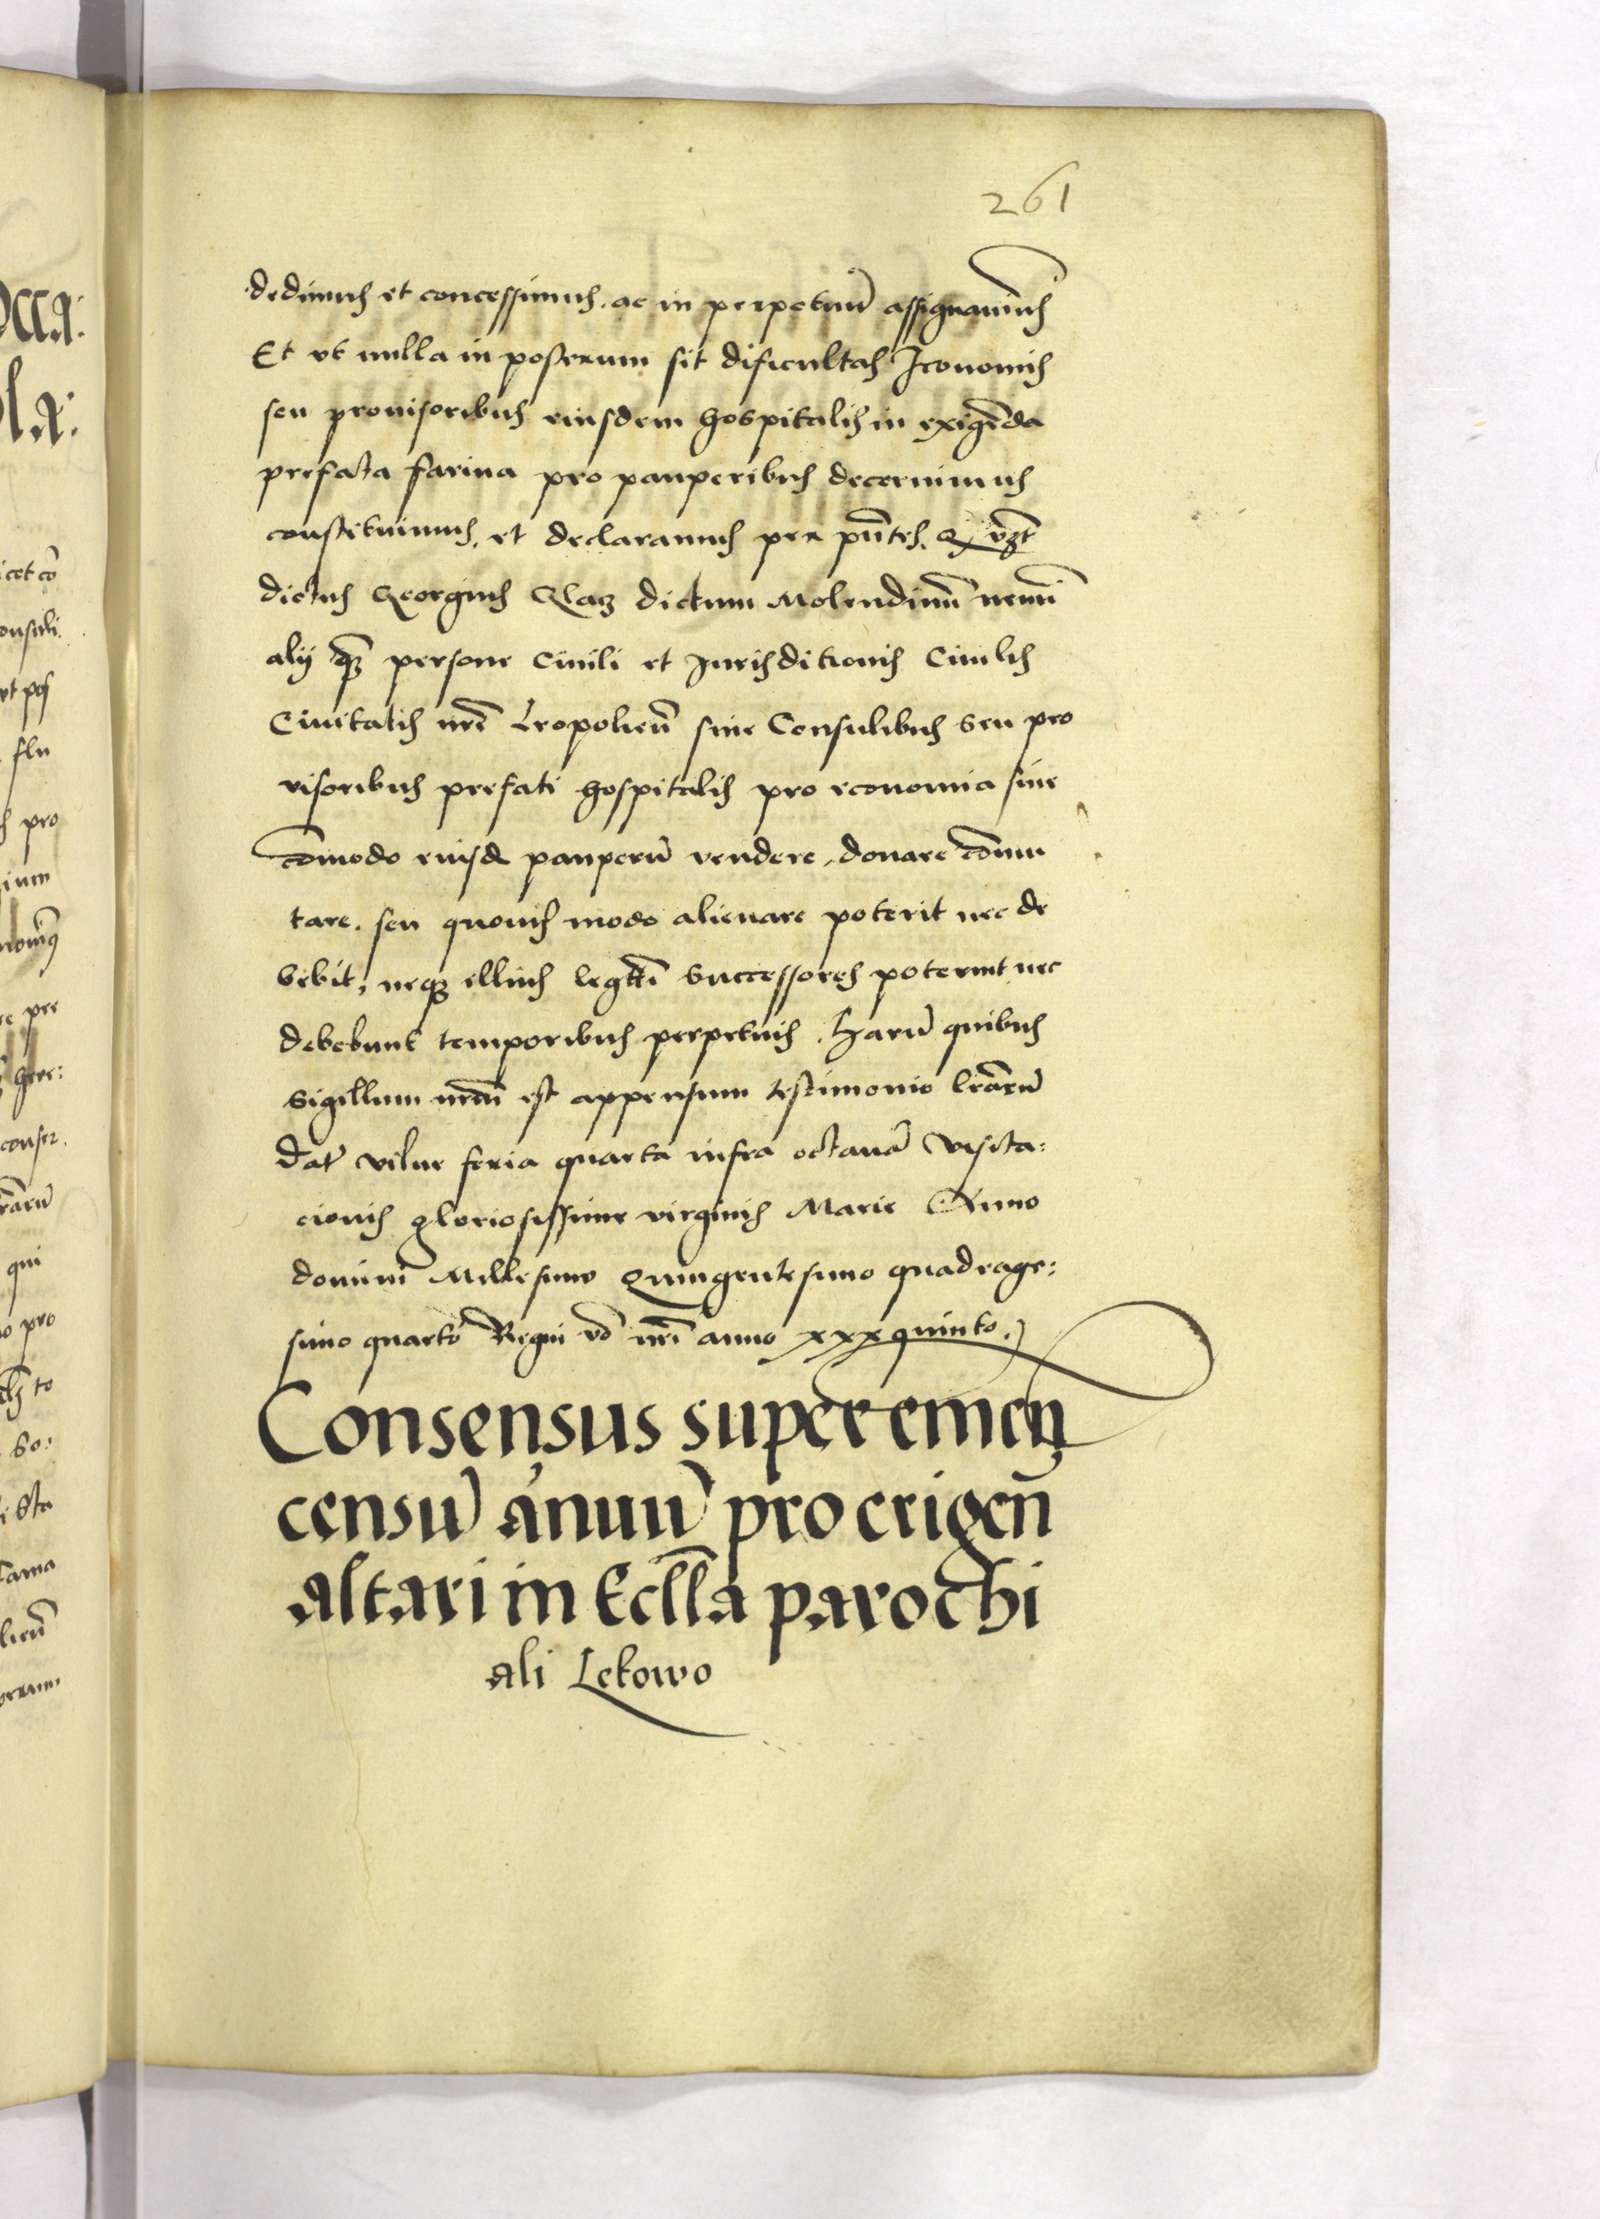 261
dedimus et concessimus. ac in perpetuũ assignauimus
Et vt nulla in posterum sit dificultas Iconomis
seu prouisoribus eiusdem hospitalis in exigẽda
prefata farina pro pauperibus decernimus
constituimus, et declaramus per pñtes. Q
dictus Georgius Glaz dictum Molendinũ nemi
alij q̃ persone Ciuili et Jurisditionis Ciuilis
Ciuitatis nrẽ Leopolieñ siue Consulibus seu pro
uisoribus prefati hospitalis pro economia siue
cõmodo eiusd pauperũ vendere, donare cõmu
tare. seu quouis modo alienare poterit nec de
bebit, neq3 illius legttĩ successores poterint nec
debebunt temporibus perpetuis. Harũ quibus
Sigillum nrũm est appensum testimonio lrãrũ
Dat̃ Vilne feria quarta infra octauã Visita:
cionis gloriosissime virginis Marie Anno
domini Millesimo Quingentesimo quadrage:
simo quarto Regni vo nrĩ anno xxxquinto.
Consensus super emeñ
censũ ánuũ pro erigeñ
altari in Eclla parochi
ali Lekowo